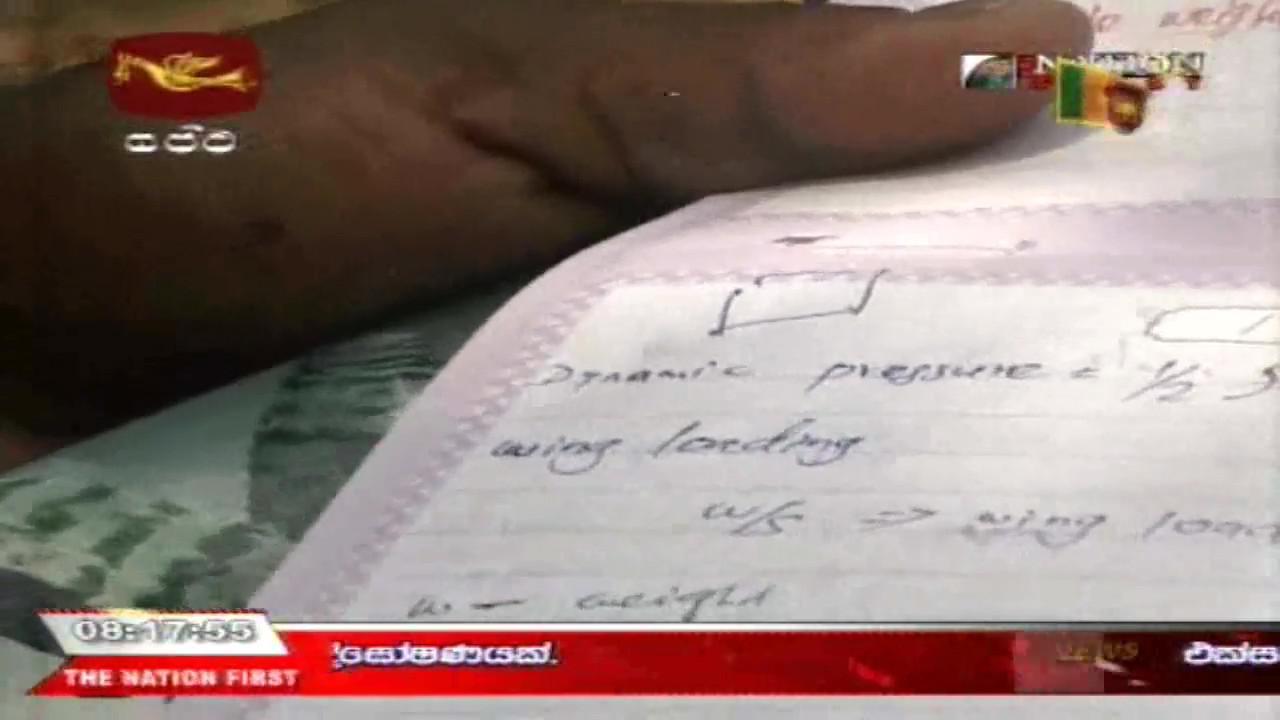 රූපවාහිනී
NATION
Dynamic pressure = 1/2 S
wing loading
w/s => wing load
w — weight
08:17:55
THE NATION FIRST
ඝෝෂණයක්.
එක්ස